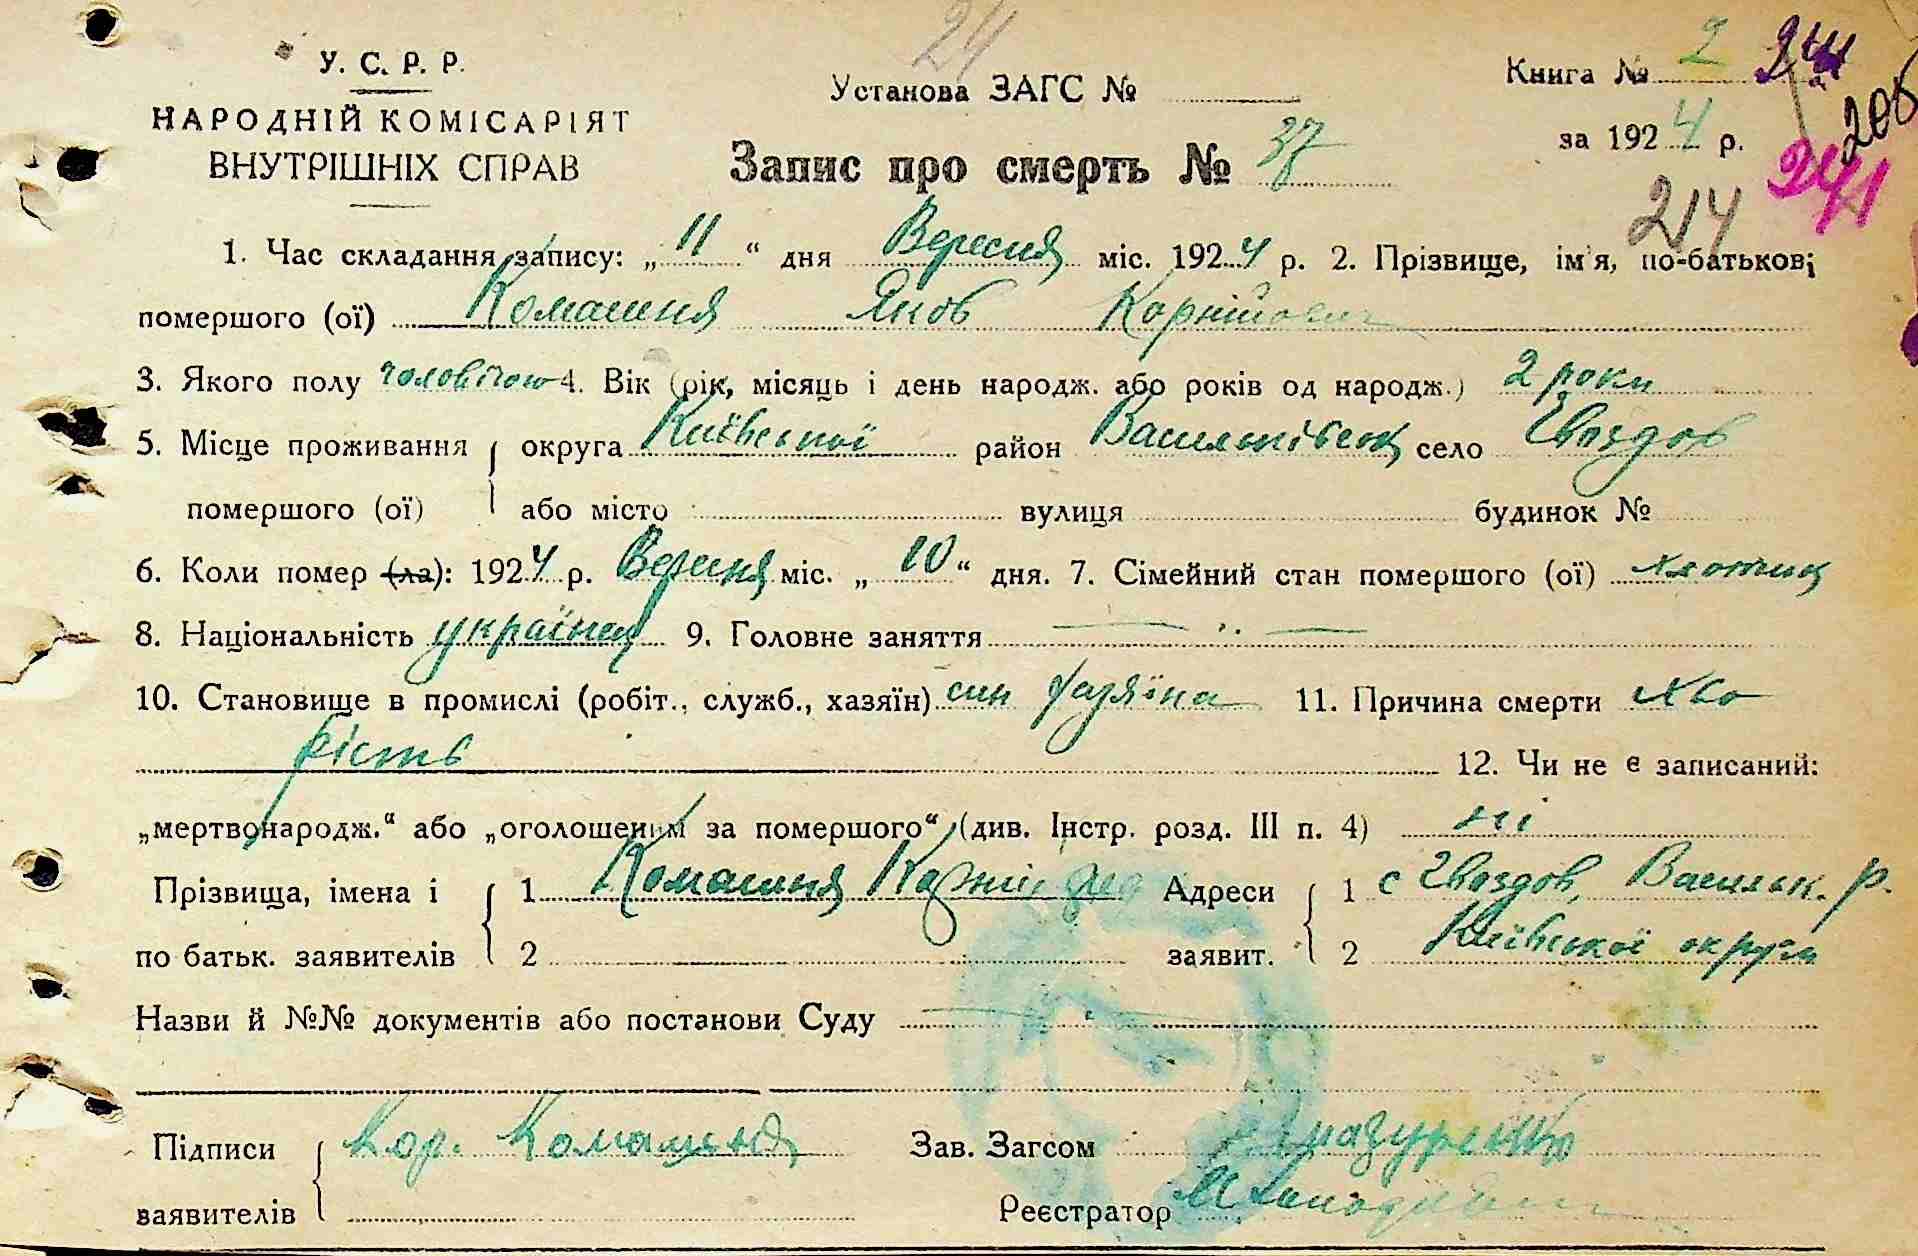 24
У. С. Р. Р.
НАРОДНІЙ КОМІСАРІЯТ
ВНУТРІШНІХ СПРАВ
Установа ЗАГС №
Книга № 2 241
за 1924 р. 208
241
214
Запис про смерть № 37
1. Час складання запису: „ 11 “ дня Вересня міс. 1924 р. 2. Прізвище, ім'я, по-батькові
помершого (ої) Комашня Яков Корнійович
3. Якого полу чоловічою 4. Вік (рік, місяць і день народж. або років од народж.) 2 роки
5. Місце проживання округа Київської район Васильківськ село Гвоздов
помершого (ої) або місто вулиця будинок №
6. Коли помер (ла): 1924 р. Вересня міс. „ 10 “ дня. 7. Сімейний стан помершого (ої) хлопець
8. Національність українец 9. Головне заняття
10. Становище в промислі (робіт., служб., хазяїн) син хазяїна 11. Причина смерти хво
рість 12. Чи не є записаний:
„мертвонародж.“ або „оголошеним за помершого“ (див. Інстр. розд. III п. 4) ні
Прізвища, імена і 1 Комашня Корній Адреси 1 с Гвоздов, Васильк. р.
по батьк. заявителів 2 заявит. 2 Київської округи
Назви й №№ документів або постанови Суду
Підписи Кор. Комашня Зав. Загсом Мазуренко
заявителів Реєстратор